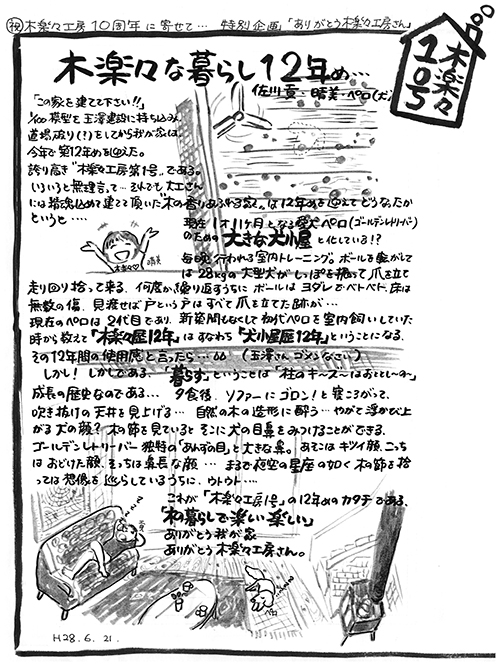 ㊗木楽々工房10周年に寄せて… 特別企画「ありがとう木楽々工房さん」
木楽々
105
木楽々な暮らし12年め…
佐川 貢・晴美・ペロ(犬)
「この家を建てて下さい!!」
1/100模型を玉澤建設に持ち込み
道場破り(?)をしてから我が家は
今年で築12年めを迎えた。
誇り高き"木楽々工房第1号"である。
いろいろと無理言って…それでも大工さん
には精魂込めて建てて頂いた"木の香りあふれる家"は12年めを迎えてどうなったか
というと‥‥
現在1才11ヶ月となる愛犬ペロ(ゴールデンレトリーバー)
のための大きな犬小屋と化している!?
毎晩行われる室内トレーニング。ボールを転がして
は28kgの大型犬がしっぽを振って爪を立て
走り回り拾って来る。何度か繰り返すうちにボールはヨダレでベトベト、床は
無数の傷、見渡せば戸という戸はすべて爪を立てた跡が…
現在のペロは2代目であり、新築間もなくして初代ペロを室内飼いしていた
時から数えて「木楽々歴12年」はすなわち「犬小屋歴12年」ということになる。
その12年間の使用感と言ったら…(玉澤さんゴメンなさい)
しかし!しかしである。「暮らす」ということは「柱のキーズ〜はおととし〜の〜」
成長の歴史なのである… 夕食後、ソファーにゴロン!と寝ころがって、
吹き抜けの天井を見上げる… 自然の木の造形に酔う…やがて浮かび上
がる犬の顔?木の節を見ているとそこに犬の目鼻をみつけることができる。
ゴールデンレトリーバー独特の「あんずの目」と大きな鼻。あそこはキツイ顔、こっち
はおどけた顔、そっちは鼻長な顔… まるで夜空の星座の如く木の節を拾
っては想像を巡らしているうちに、ウトウト…
これが「木楽々工房1号」の12年めのカタチである。
「木の暮らしで楽しい楽しい」
ありがとう我が家
ありがとう木楽々工房さん。
木楽々♡
晴美
H28.6.21.